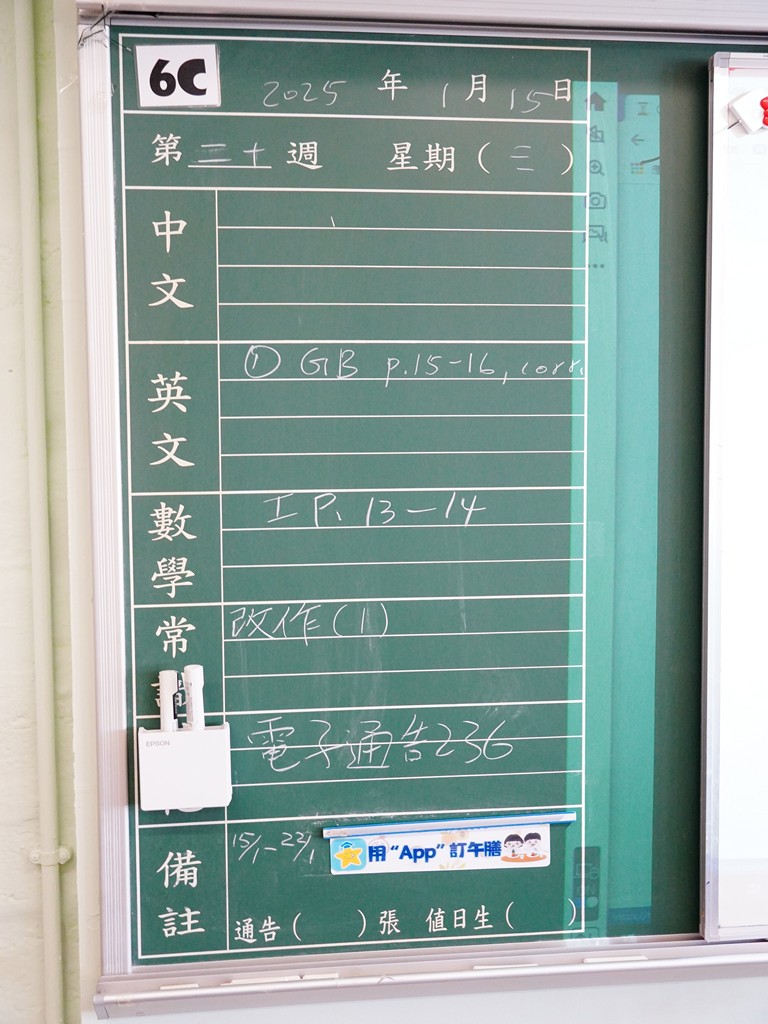 6C 2025 年 1 月 15 日
第 二十 週 星期 ( 三 )
中文
英文 ① GB p.15-16, corr.
數學 工 P. 13-14
常 改作(1)
EPSON
電子通告236
備註 15/1-22/1
用 "App" 訂午膳
通告 ( ) 張 值日生 ( )